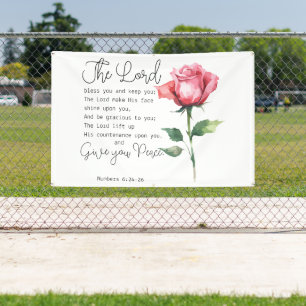 The Lord
bless you and keep you;
The Lord make His face
shine upon you,
And be gracious to you;
The Lord lift up
His countenance upon you,
and
Give you Peace.
Numbers 6:24-26